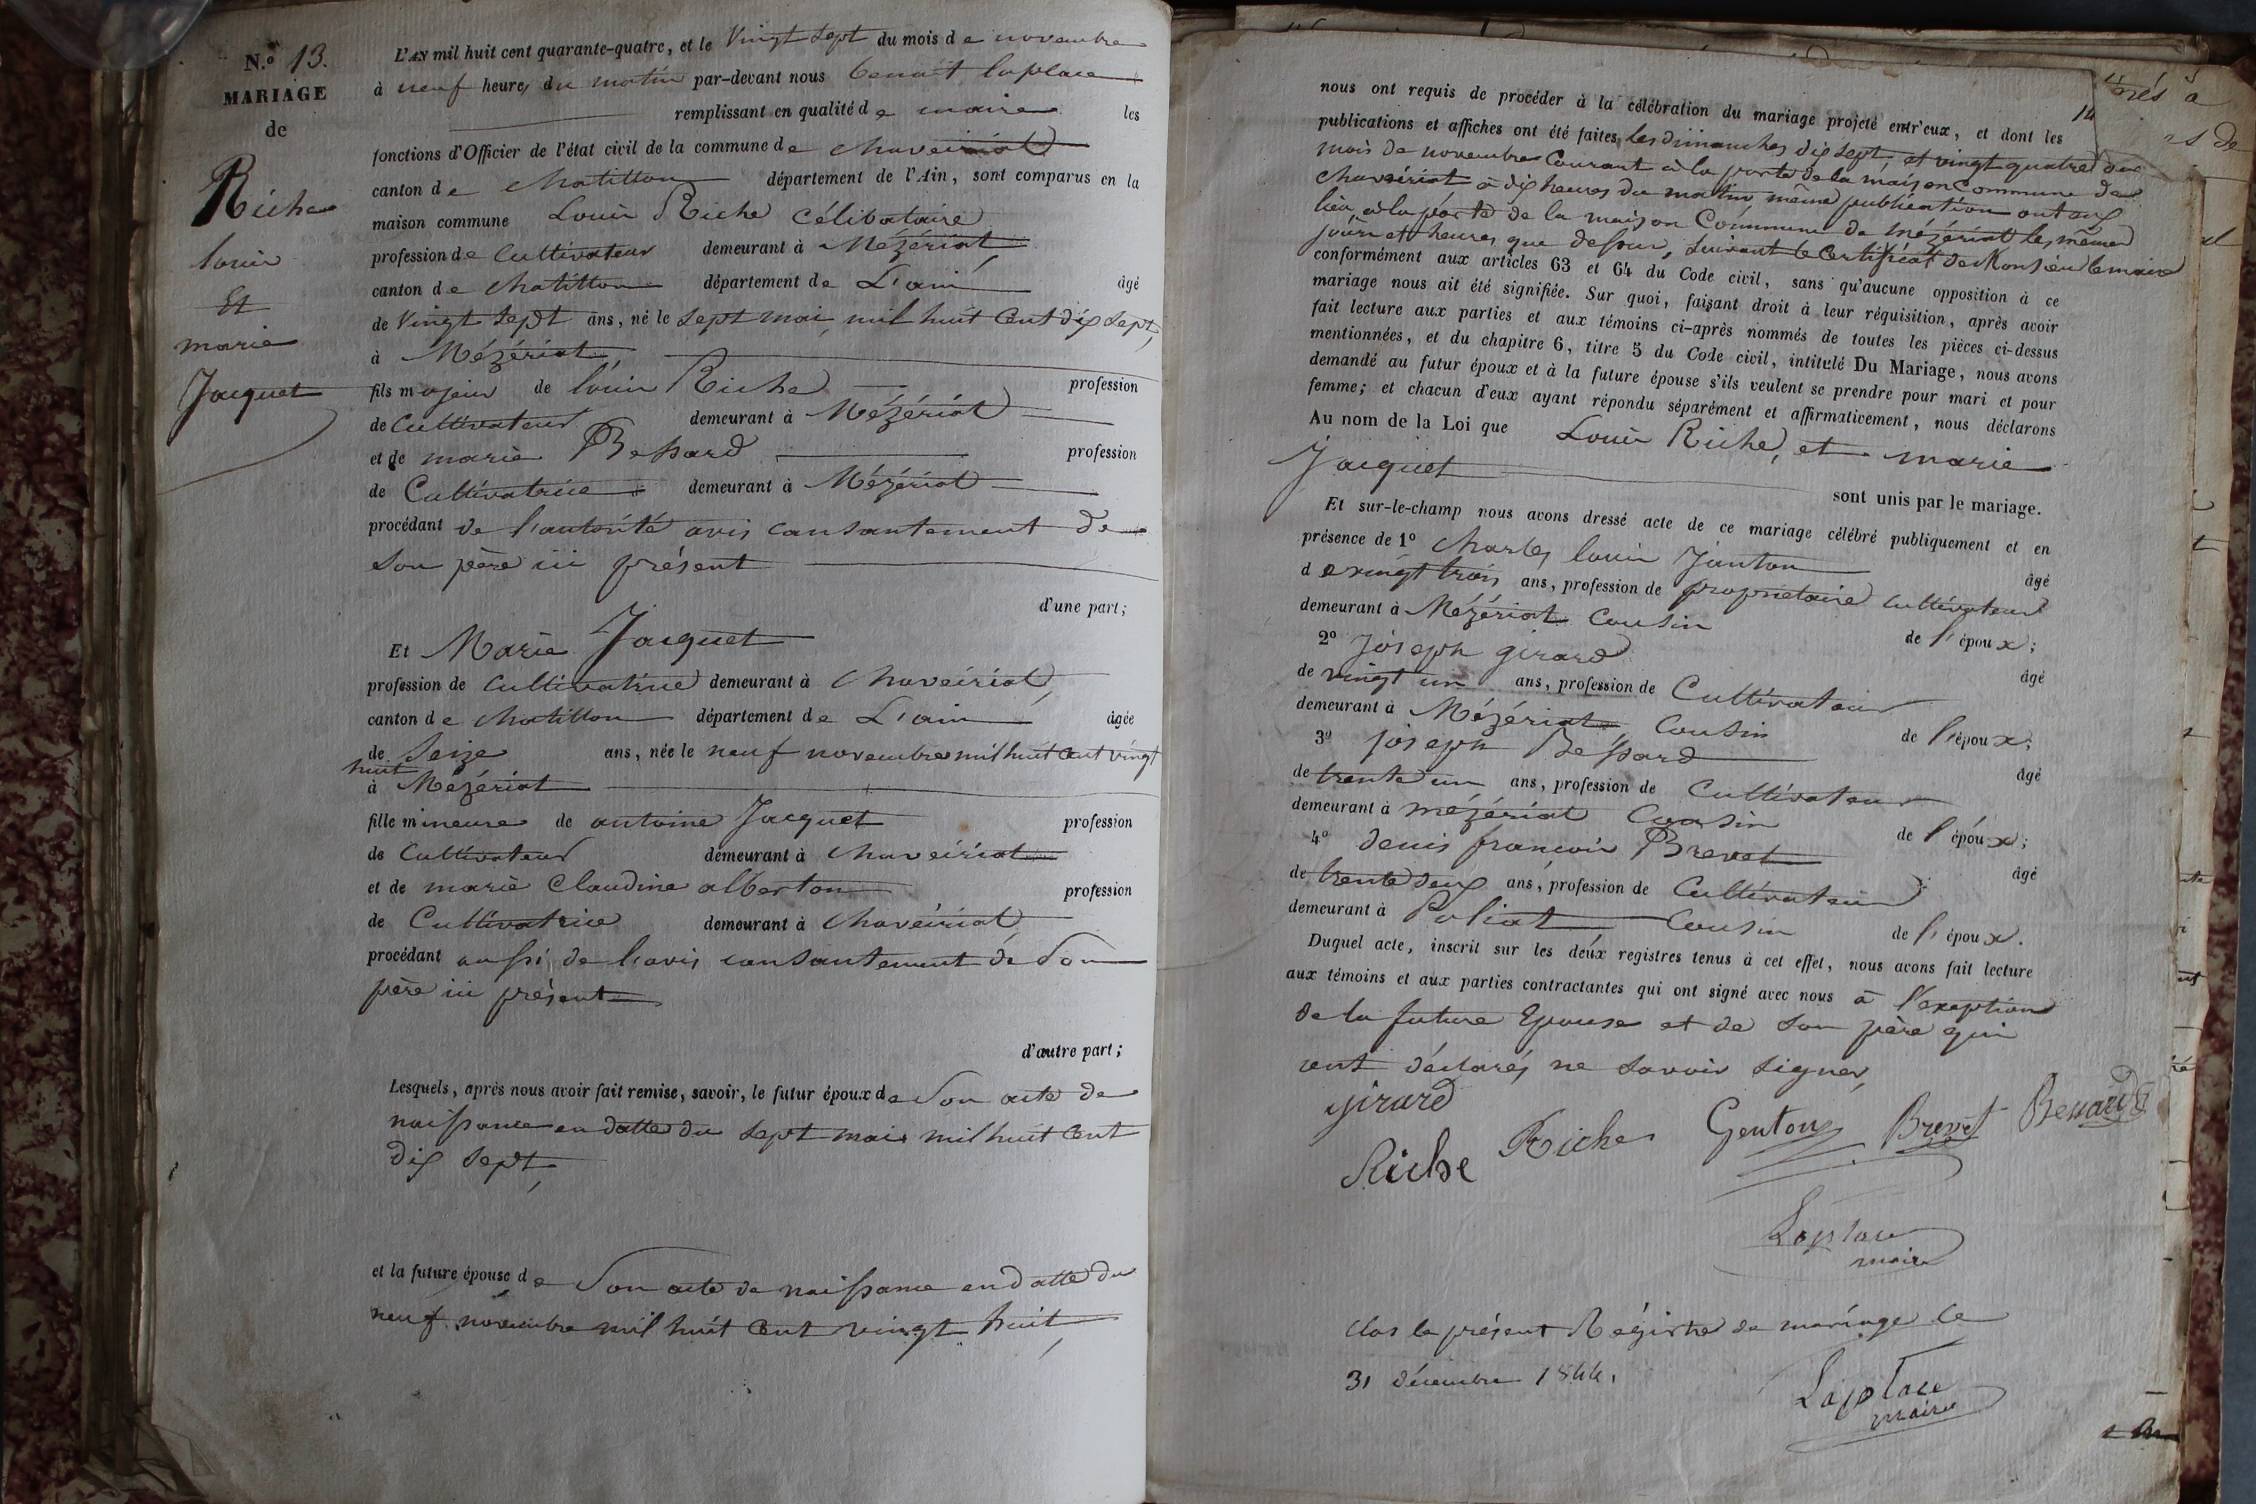 N.o 13.
MARIAGE
de
Riche
louis
Et
marie
Jacquet
L'AN mil huit cent quarante-quatre, et le Vingt sept du mois de novembre
à neuf heures du matin par-devant nous benoit laplace
remplissant en qualité de maire les
fonctions d'Officier de l'état civil de la commune de chaveiriat
canton de chatillon département de l'Ain, sont comparus en la
maison commune Louis Riche célibataire
profession de Cultivateur demeurant à Mézériat
canton de chatillon département de L'ain âgé
de vingt sept ans, né le sept mai mil huit cent dix sept,
à Mézériat
fils majeur de louis Riche profession
de Cultivateur demeurant à Mézériat
et de marie Bessard profession
de Cultivatrice demeurant à Mézériat
procédant de l'autorité avis consantement de
son père ici présent
d'une part;
Et Marie Jacquet
profession de Cultivatrice demeurant à Chaveiriat
canton de chatillon département de L'ain âgée
de Seize ans, née le neuf novembre mil huit cent vingt
huit
à Mézériat
fille mineure de antoine Jacquet profession
de Cultivateur demeurant à chaveiriat
et de marie Claudine alberton profession
de Cultivatrice demeurant à Chaveiriat
procédant aussi de l'avis consantement de son
père ici présent
d'autre part;
Lesquels, après nous avoir fait remise, savoir, le futur époux de Son acte de
naissance en datte du sept mai mil huit cent
dix sept,
et la future épouse de Son acte de naissance en datte du
neuf novembre mil huit cent vingt huit
14
nous ont requis de procéder à la célébration du mariage projeté entr'eux, et dont les
publications et affiches ont été faites les dimanches dix sept, et vingt quatre du
mois de novembre Courant à la porte de la maison Commune de
chaveiriat à dix heures du matin même publication ont eu
lieu à la porte de la maison Commune de mézériat les mêmes
jours et heures que dessus, suivant le Certificat de Monsieur le maire
conformément aux articles 63 et 64 du Code civil, sans qu'aucune opposition à ce
mariage nous ait été signifiée. Sur quoi, faisant droit à leur réquisition, après avoir
fait lecture aux parties et aux témoins ci-après nommés de toutes les pièces ci-dessus
mentionnées, et du chapitre 6, titre 5 du Code civil, intitulé Du Mariage, nous avons
demandé au futur époux et à la future épouse s'ils veulent se prendre pour mari et pour
femme; et chacun d'eux ayant répondu séparément et affirmativement, nous déclarons
Au nom de la Loi que Louis Riche, et marie
Jacquet sont unis par le mariage.
Et sur-le-champ nous avons dressé acte de ce mariage célébré publiquement et en
présence de 1o Charles louis Janton âgé
de vingt trois ans, profession de propriétaire cultivateur
demeurant à Mézériat Cousin de l'époux;
2o Joseph girard âgé
de vingt un ans, profession de Cultivateur
demeurant à Mézériat Cousin de l'époux;
3o joseph Bessard âgé
de trente un ans, profession de Cultivateur
demeurant à mézériat Cousin de l'époux;
4o denis françois Brevet âgé
de trente deux ans, profession de Cultivateur
demeurant à Poliat Cousin de l'époux.
Duquel acte, inscrit sur les deux registres tenus à cet effet, nous avons fait lecture
aux témoins et aux parties contractantes qui ont signé avec nous à l'exeption
de la future Epouse et de son père qui
ont déclarés ne savoir signer,
girard
Riche Riche Genton Brevet Bessard
Laplace
maire
Clos le présent Régistre de mariage le
31 décembre 1844.
Laplace
maire